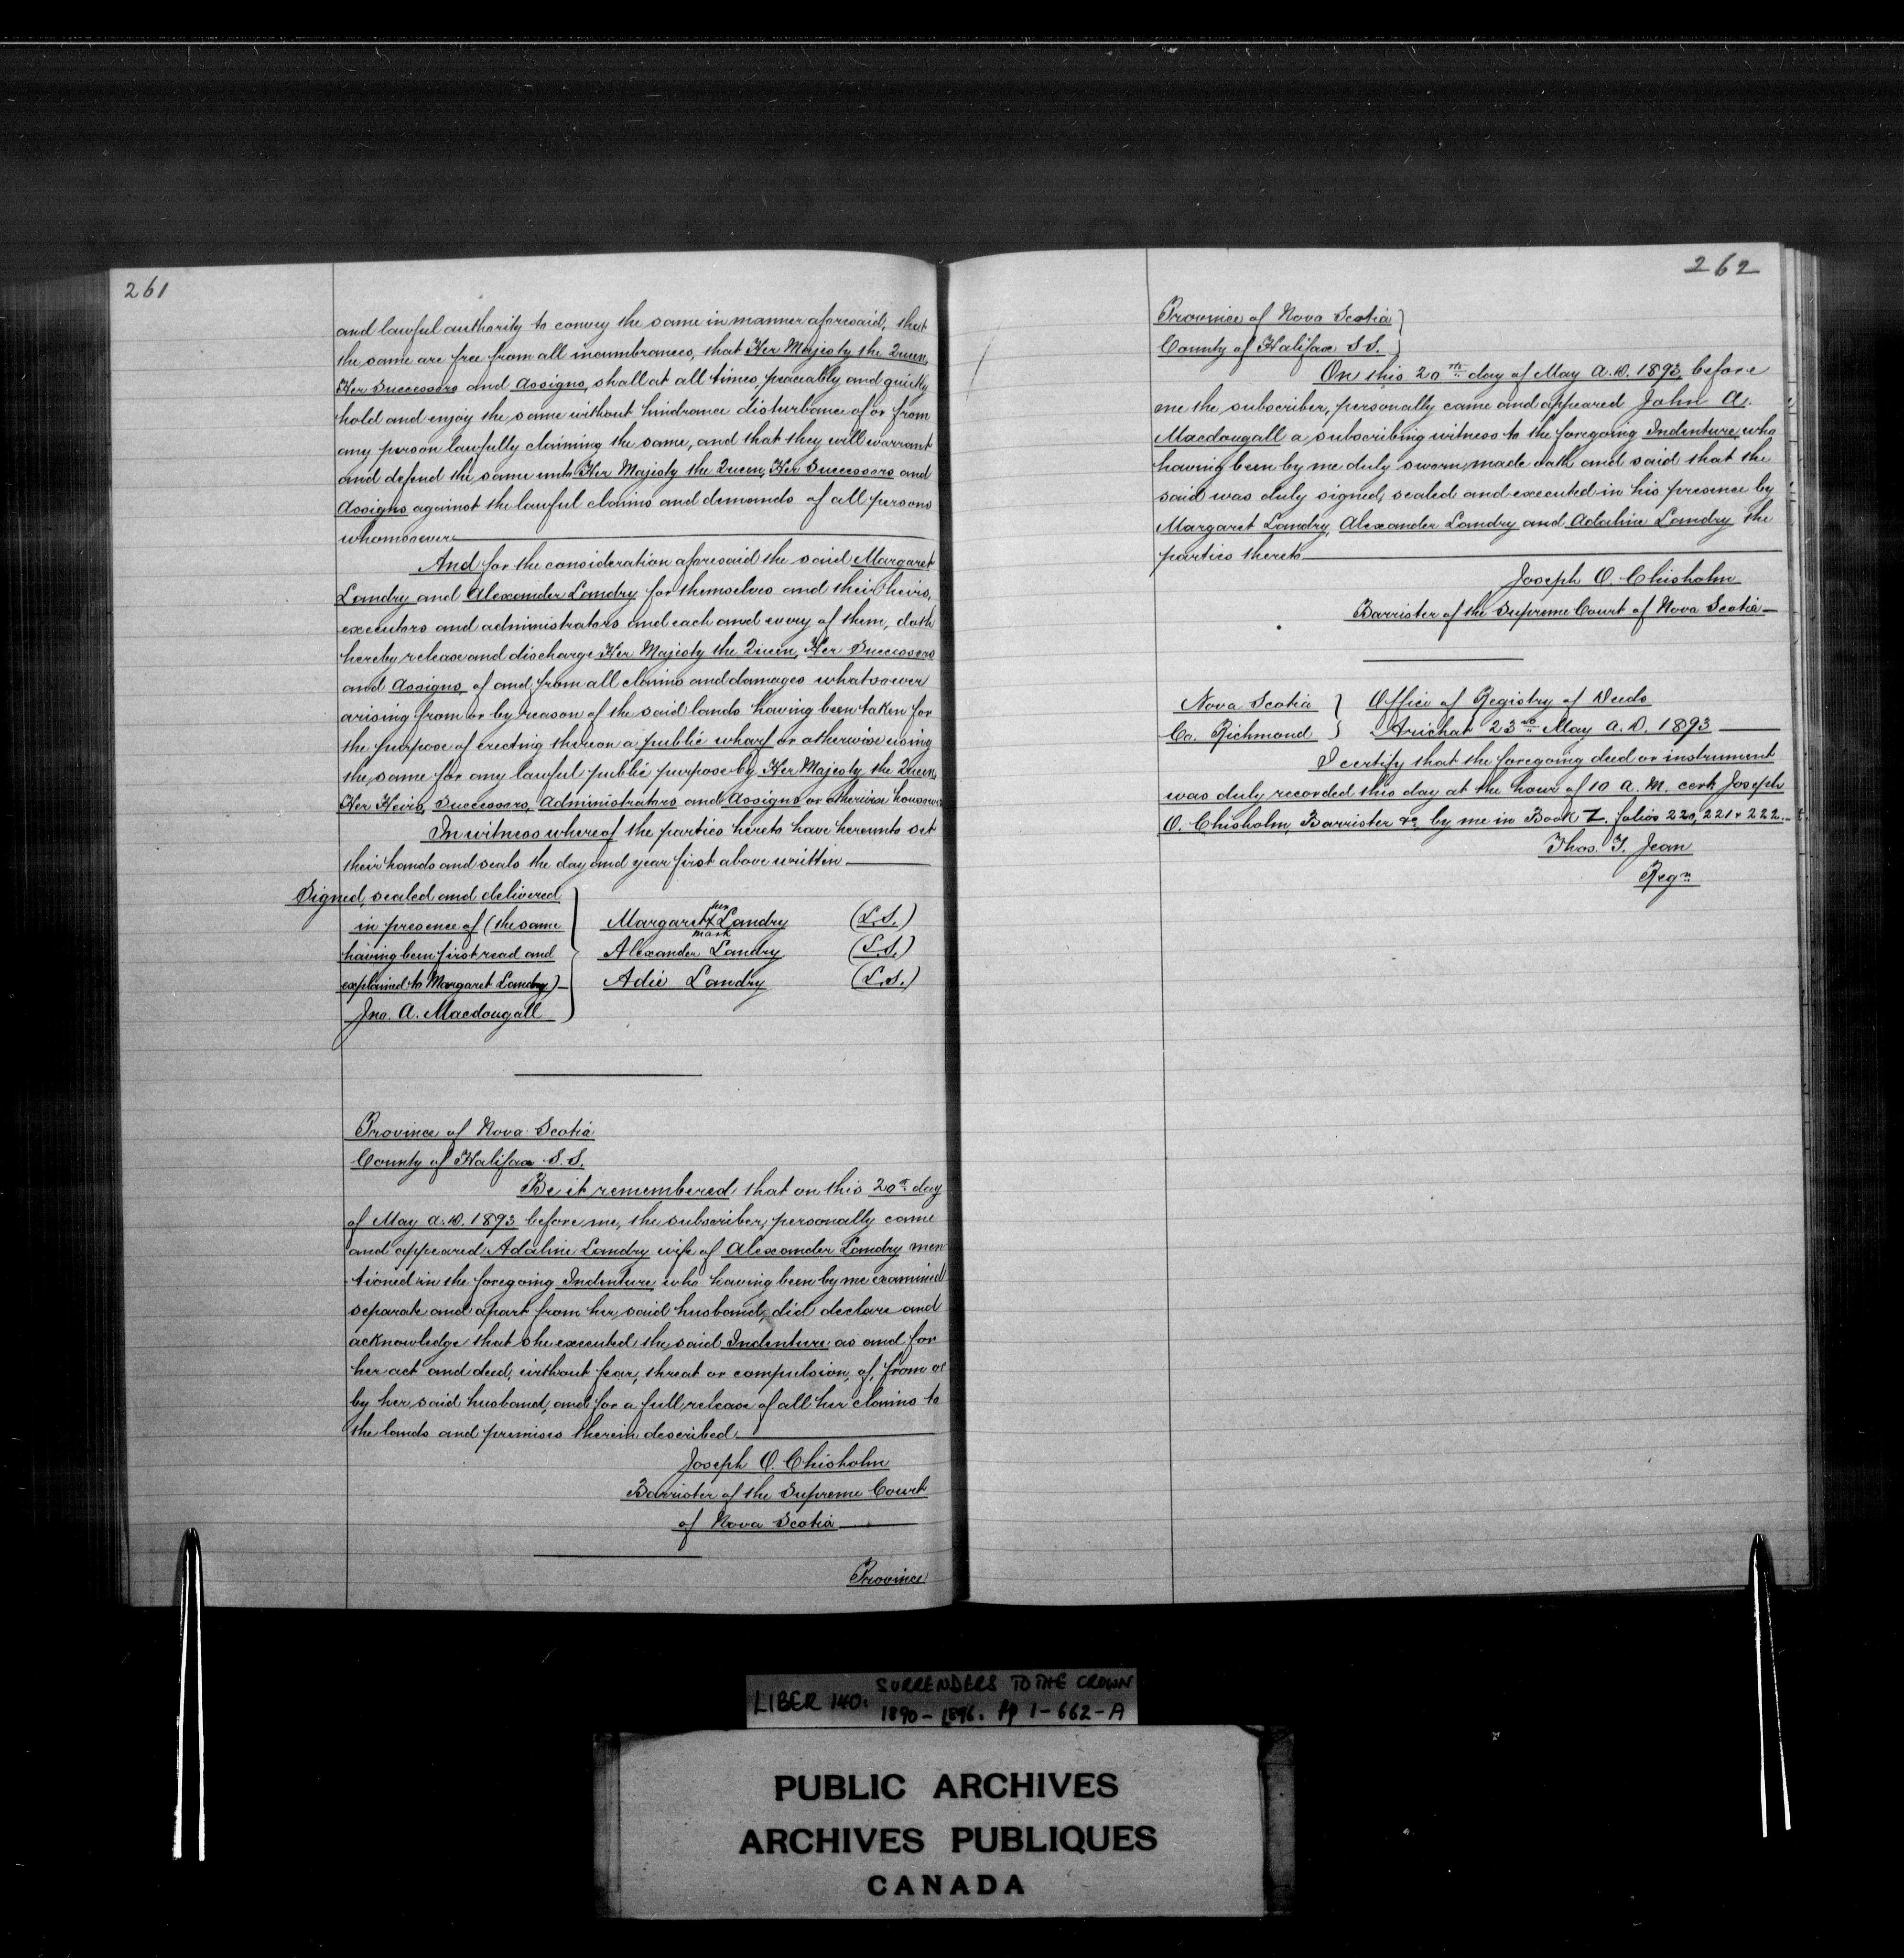 261
and lawful authority to convey the same in manner aforesaid, that
the same are free from all incumbrances, that Her Majesty the Queen,
Her Successors and Assigns, shall at all times, peaceably and quietly
hold and enjoy the same without hindrance disturbance of or from
any person lawfully claiming the same, and that they will warrant
and defend the same unto Her Majesty the Queen, Her Successors and
Assigns against the lawful claims and demands of all persons
whomsoever
And for the consideration aforesaid the said Margaret
Landry and Alexander Landry for themselves and their heirs,
executors and administrators and each and every of them, doth
hereby release and discharge Her Majesty the Queen, Her Successors
and Assigns, of and from all claims and damages whatsoever
arising from or by reason of the said lands having been taken for
the purpose of erecting thereon a public wharf or otherwise using
the same for any lawful public purpose by Her Majesty the Queen,
Her Heirs, Successors, Administrators and Assigns or otherwise howsoever
In witness whereof the parties hereto have hereunto set
their hands and seals the day and year first above written
Signed, sealed and delivered
in presence of (the same
having been first read and
explained to Margaret Landry)
Jno. A. Macdougall
her
Margaret X Landry (L.S.)
mark
Alexander Landry (L.S.)
Adie Landry (L.S.)
Province of Nova Scotia
County of Halifax S.S.
Be it remembered that on this 20th day
of May A.D. 1893 before me, the subscriber, personally came
and appeared Adaline Landry wife of Alexander Landry men
tioned in the foregoing Indenture, who having been by me examined
separate and apart from her said husband, did declare and
acknowledge that she executed the said Indenture as and for
her act and deed, without fear, threat or compulsion, of, from or
by her said husband, and for a full release of all her claims to
the lands and premises therein described
Joseph O. Chisholm
Barrister of the Supreme Court
of Nova Scotia
Province
262
Province of Nova Scotia
County of Halifax S.S.
On this 20th day of May A.D. 1893, before
me the subscriber, personally came and appeared John A.
Macdougall a subscribing witness to the foregoing Indenture, who
having been by me duly sworn, made oath and said that the
said was duly signed, sealed and executed in his presence by
Margaret Landry, Alexander Landry and Adaline Landry the
parties thereto
Joseph O. Chisholm
Barrister of the Supreme Court of Nova Scotia
Nova Scotia } Office of Registry of Deeds
Co. Richmond } Arichat 23rd May A.D. 1893
I certify that the foregoing deed or instrument
was duly recorded this day at the hour of 10 A.M. cert Joseph
O. Chisholm, Barrister &c, by me in Book Z. folios 220, 221 & 222.
Thos. J. Jean
Regr
LIBER 140: SURRENDERS TO THE CROWN
1890-1896. pp 1-662-A
PUBLIC ARCHIVES
ARCHIVES PUBLIQUES
CANADA